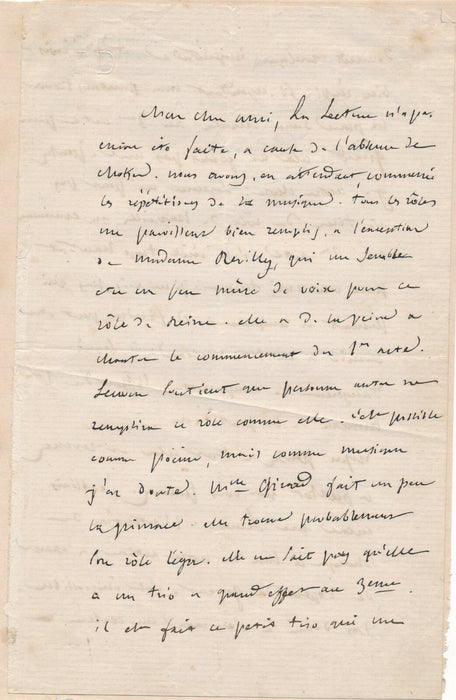 Mon cher ami, La Lecture n'a pas
encore été faite, a cause de l'absence de
Choker. nous avons, en attendant, commencé
les répétitions de la musique. tous les rôles
me paraissent bien remplis, a l'exception
de madame Révilly, qui me semble
être un peu mûre de voix pour ce
rôle de Reine. elle a de la peine a
chanter le commencement du 1er acte.
Leuven soutient que personne autre ne
remplira ce rôle comme elle. c'est possible
comme poème, mais comme musique
j'en Doute. Melle Girard fait un peu
la grimace. elle trouve probablement
son rôle léger. elle ne sait pas qu'elle
a un trio a grand effet au 3eme.
il est fait ce petit trio qui me